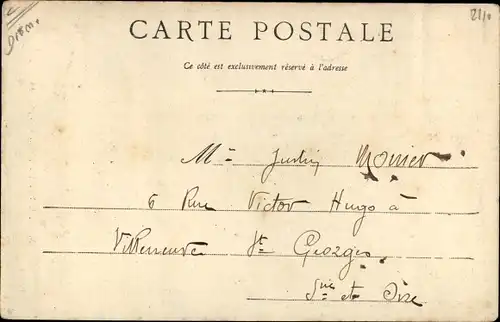 CARTE POSTALE
Ce côté est exclusivement réservé à l'adresse
Me Justin Monier
6 Rue Victor Hugo à
Villeneuve St Georges
Sne et Oise